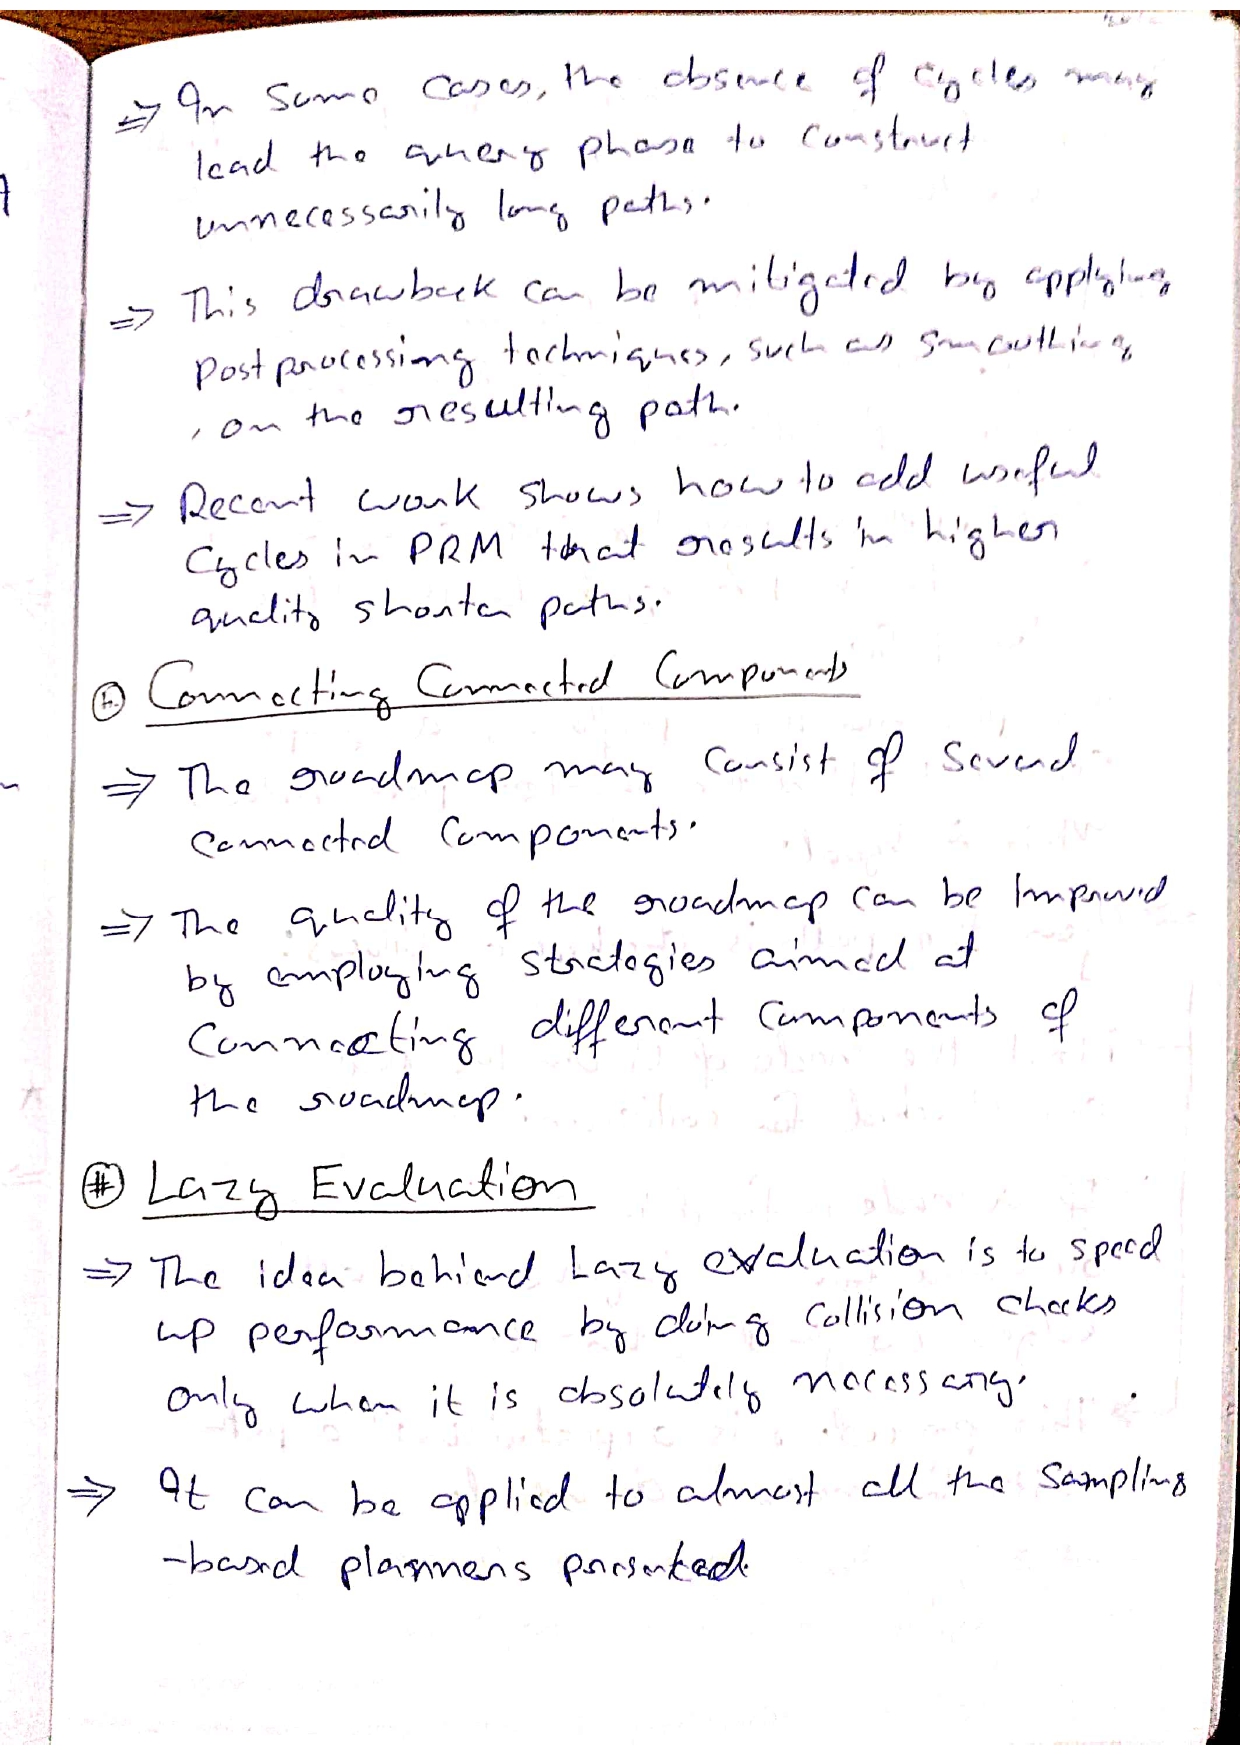 ⇒ In some cases, the absence of cycles may
lead the query phase to construct
unnecessarily long paths.
⇒ This drawback can be mitigated by applying
postprocessing techniques, such as smoothing
, on the resulting path.
⇒ Recent work shows how to add useful
cycles in PRM that results in higher
quality shorter paths.
Connecting Connected Components
⇒ The roadmap may consist of several
connected components.
⇒ The quality of the roadmap can be improved
by employing strategies aimed at
connecting different components of
the roadmap.
# Lazy Evaluation
⇒ The idea behind Lazy evaluation is to speed
up performance by doing collision checks
only when it is absolutely necessary.
⇒ It can be applied to almost all the sampling
-based planners presented